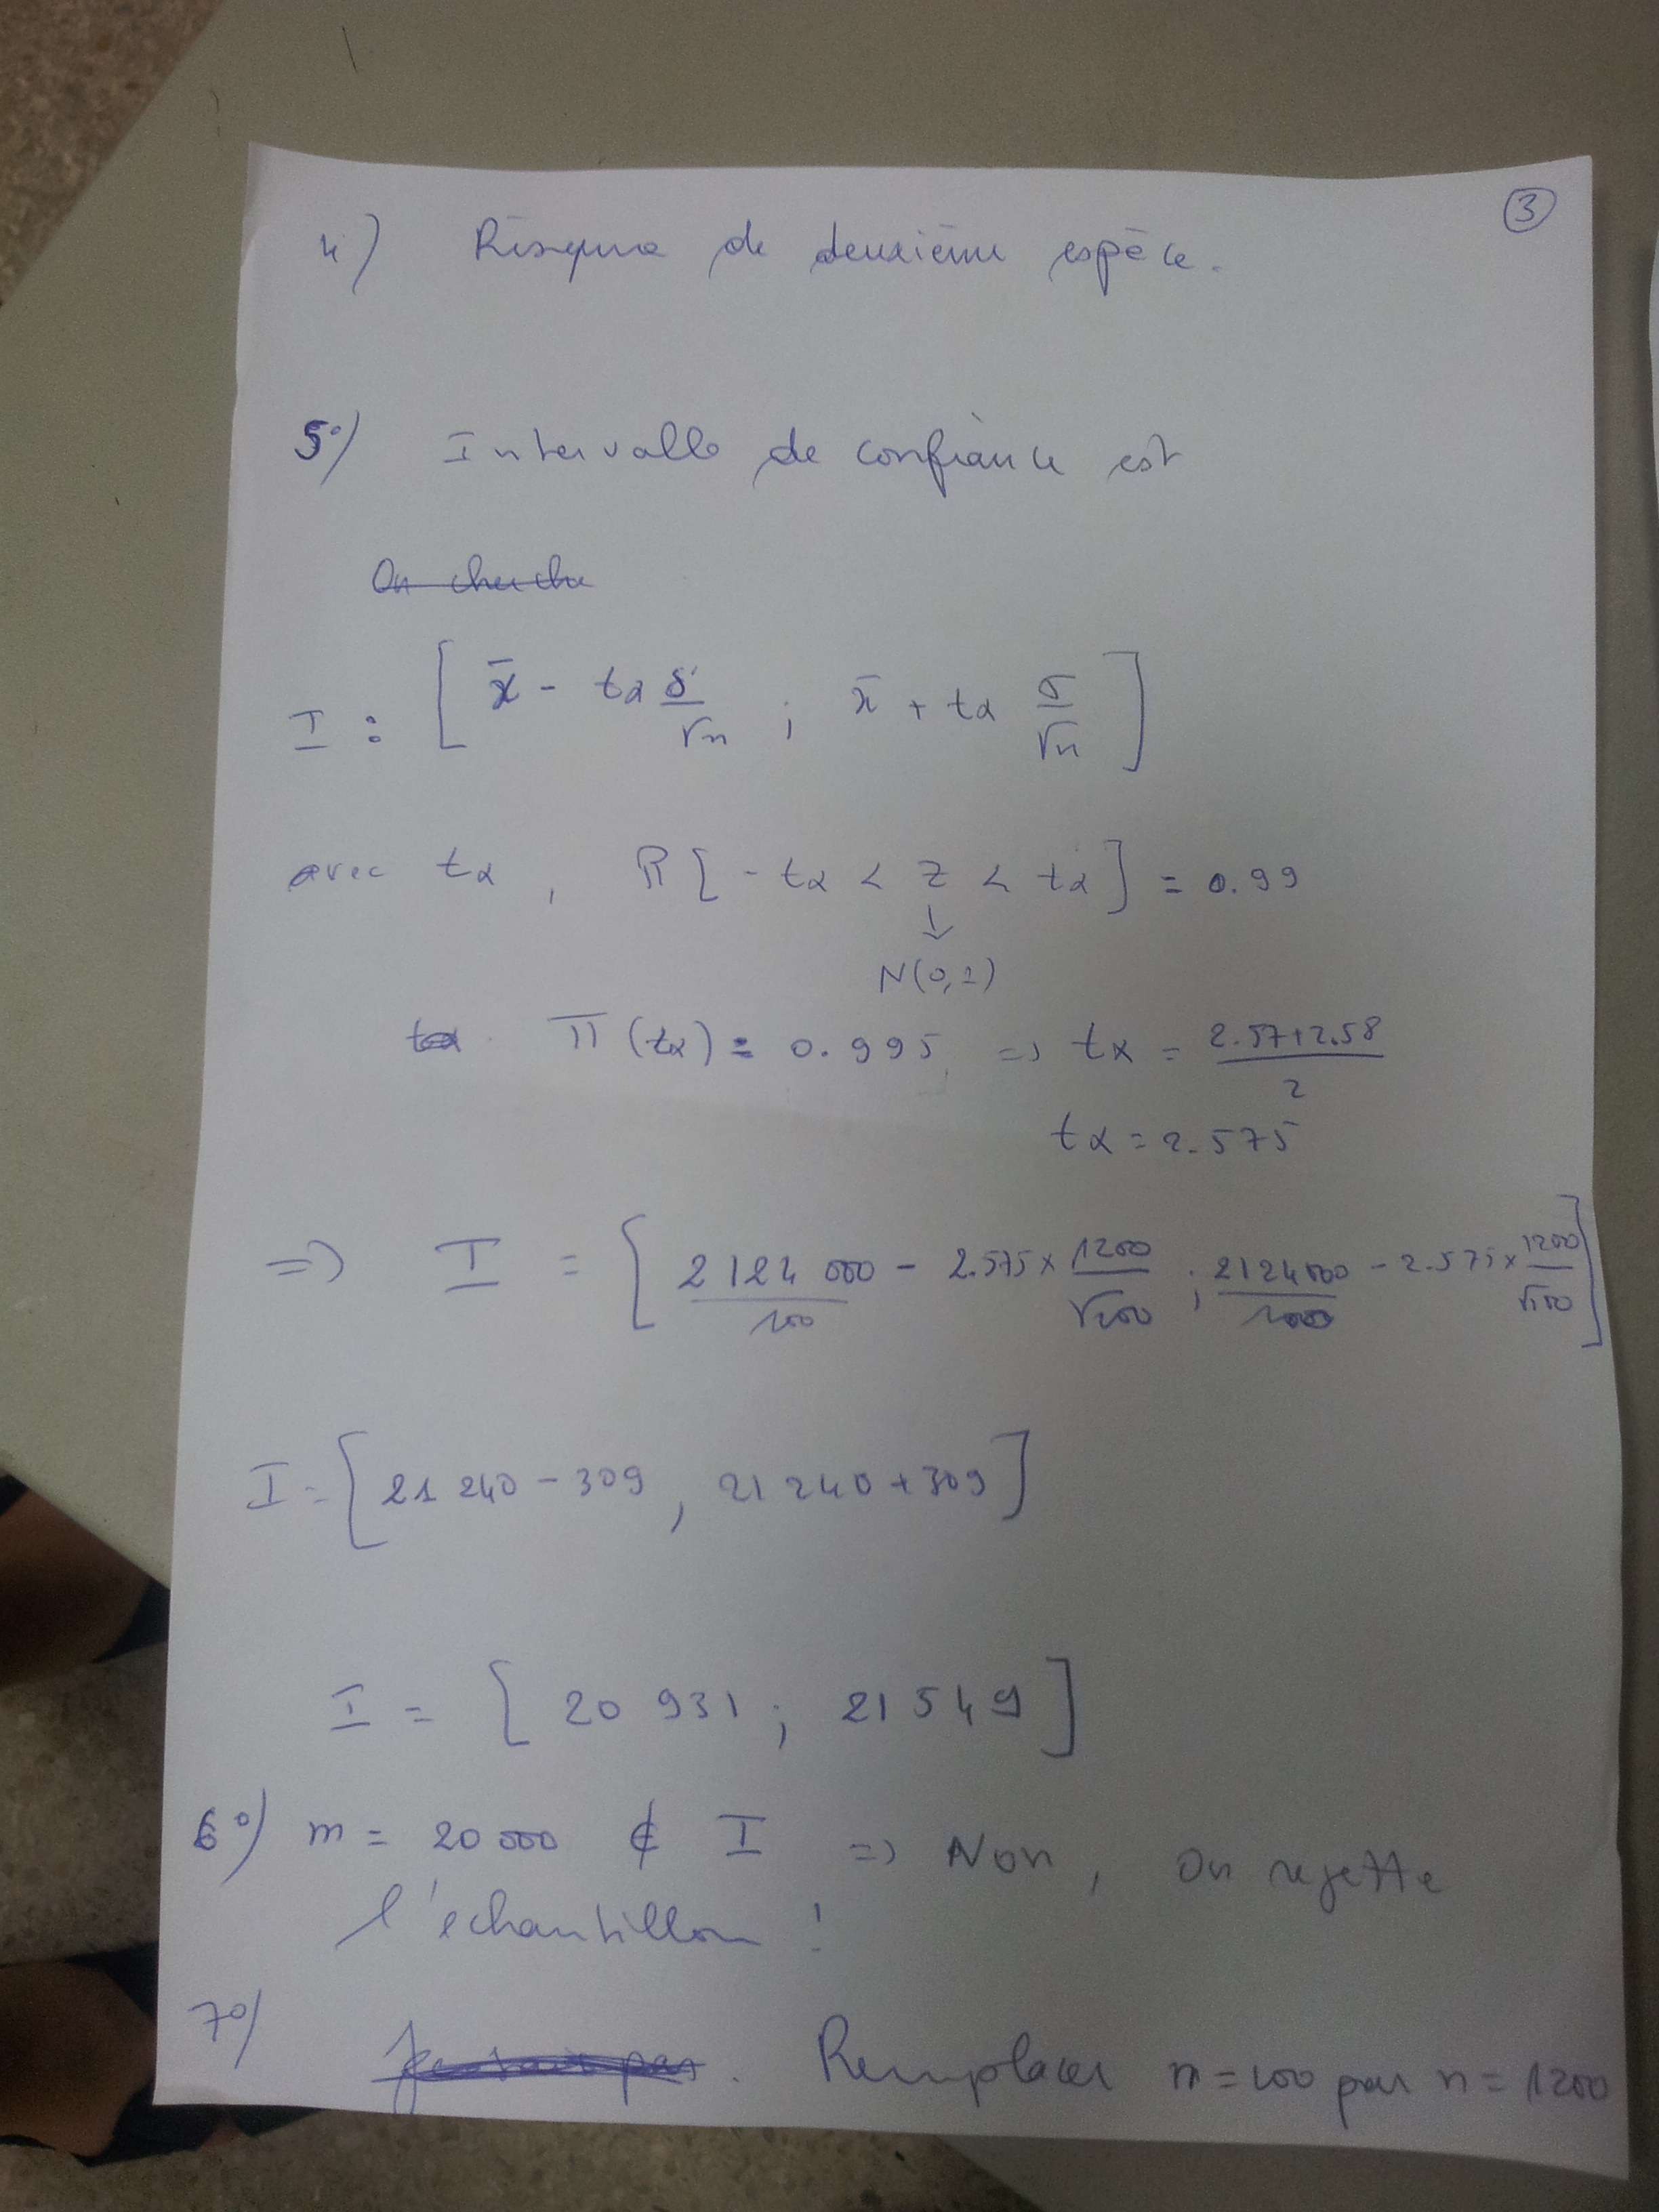 3
4) Risque de deuxième espèce.
5°) Intervalle de confiance est
On cherche
I : [ x̄ - tα σ/√n ; x̄ + tα σ/√n ]
avec tα , P[ - tα < Z < tα ] = 0.99
↓
N(0,1)
tα Π(tα) = 0.995 => tα = (2.57+2.58)/2
tα = 2.575
=> I = [ 2124 000/100 - 2.575 × 1200/√100 ; 2124000/100 - 2.575 × 1200/√100 ]
I = [ 21 240 - 309 , 21 240 + 309 ]
I = [ 20 931 ; 21 549 ]
6°) m = 20 000 ∉ I => Non , on rejette
l'échantillon !
7°) . Remplacer n = 100 par n = 1200